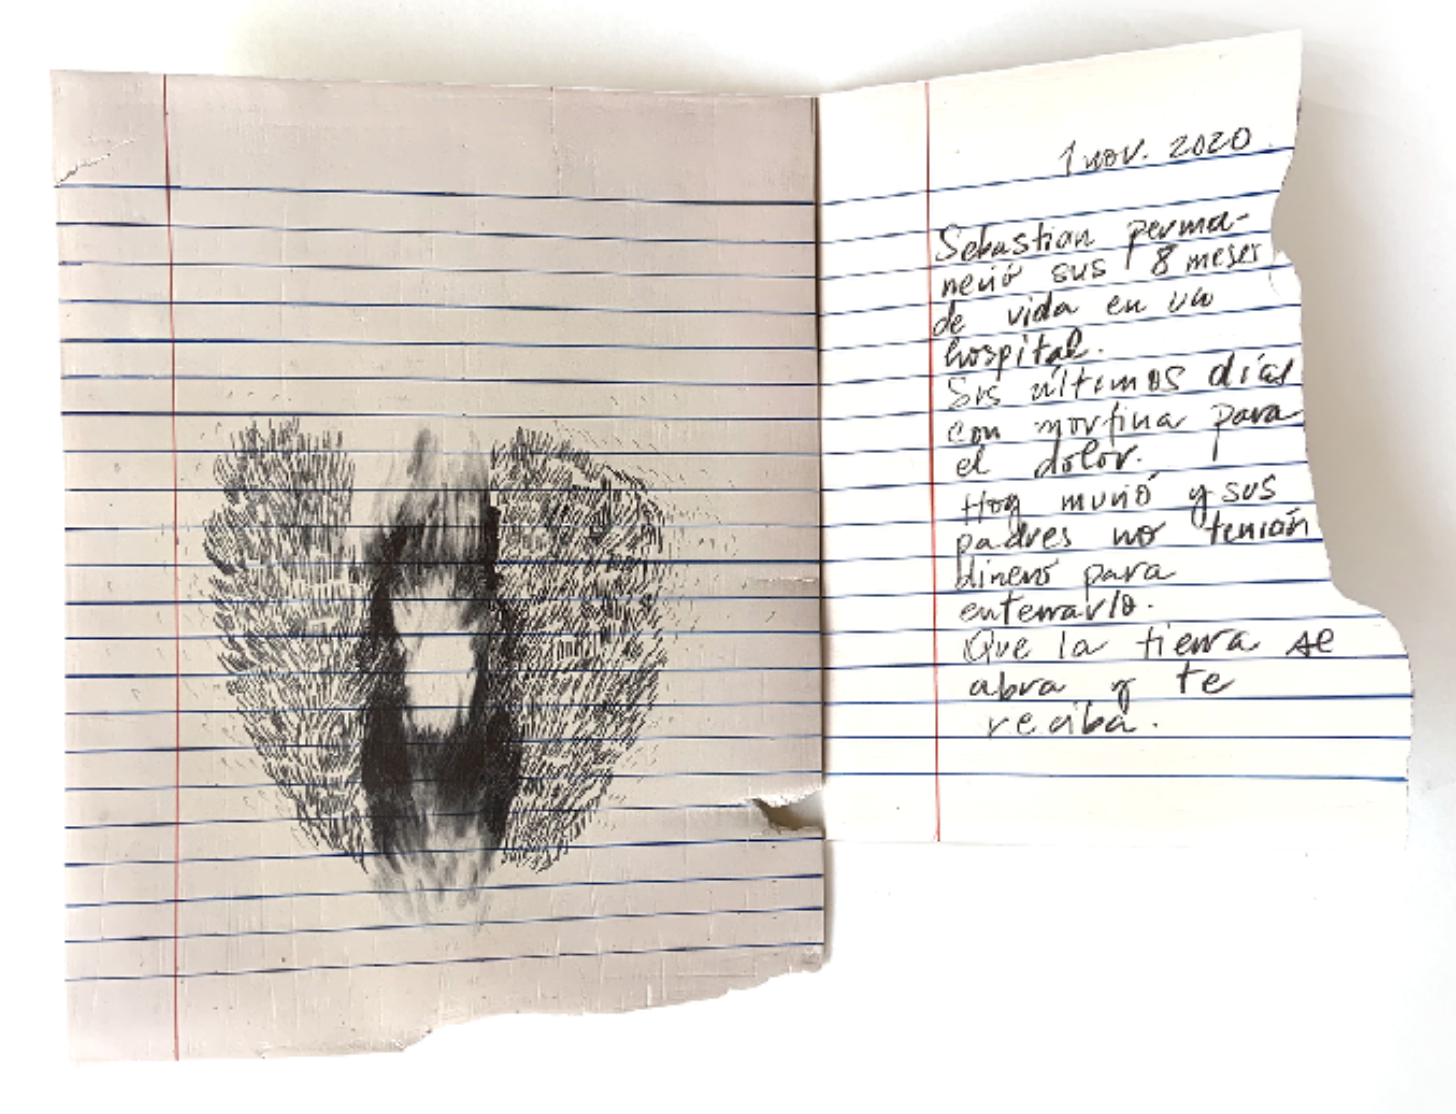 1 nov. 2020
Sebastian perma-
neció sus 8 meses
de vida en un
hospital.
Sus últimos días
con morfina para
el dolor.
Hoy murió y sus
padres no tenían
dinero para
enterrarlo.
Que la tierra se
abra y te
reciba.